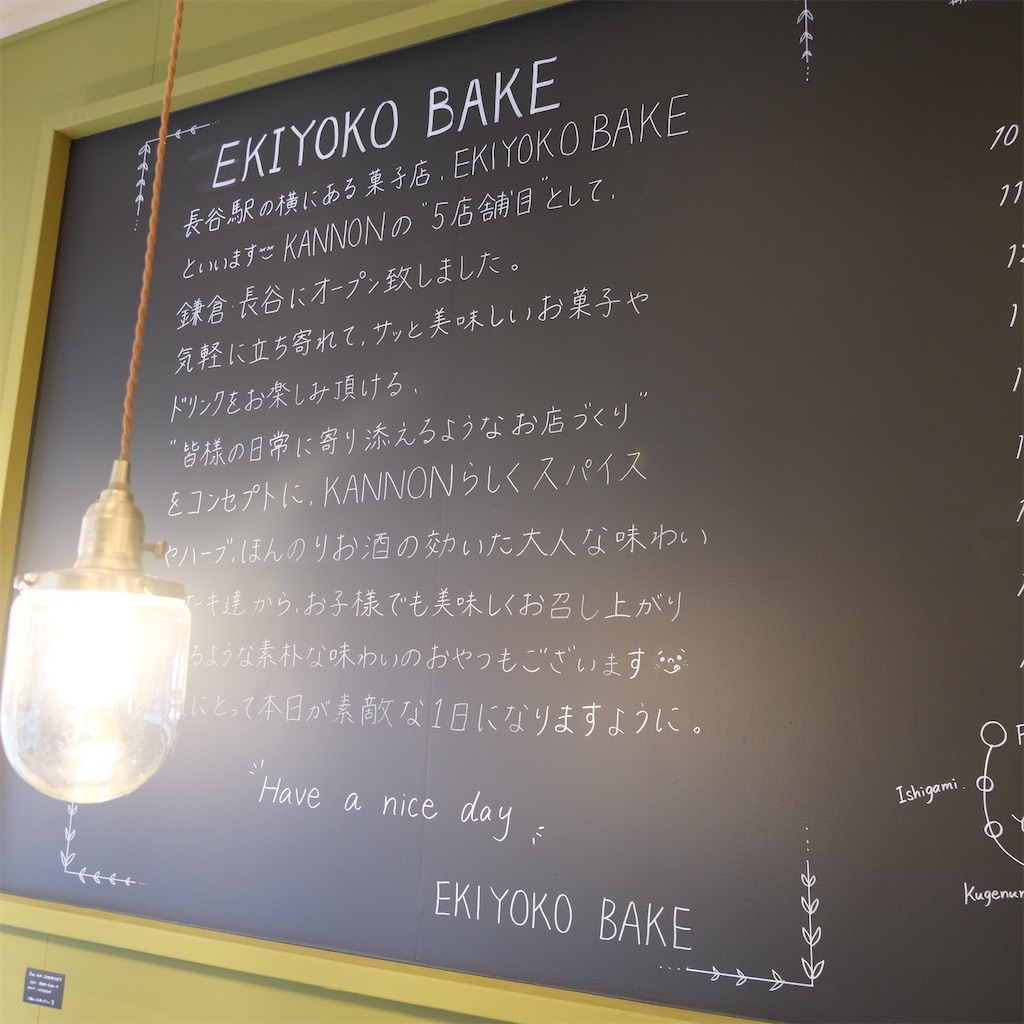 EKIYOKO BAKE
長谷駅の横にある菓子店、EKIYOKO BAKE
といいます KANNONの"5店舗目"として、
鎌倉・長谷にオープン致しました。
気軽に立ち寄れて、サッと美味しいお菓子や
ドリンクをお楽しみ頂ける、
"皆様の日常に寄り添えるようなお店づくり"
をコンセプトに、KANNONらしくスパイス
やハーブ、ほんのりお酒の効いた大人な味わい
ーキ達から、お子様でも美味しくお召し上がり
るような素朴な味わいのおやつもございます
にとって本日が素敵な1日になりますように。
Have a nice day
EKIYOKO BAKE
10
11
Ishigami
Kugenu